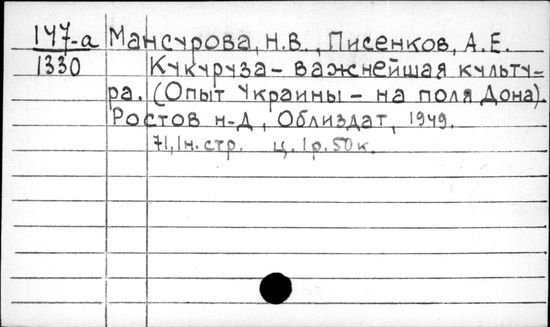 147-а Мансурова, Н.В., Писенков, А.Е.
1330 Кукуруза - важнейшая культу-
ра. (Опыт Украины - на поля Дона).
Ростов н-Д, Облиздат, 1949.
71,1н.стр. ц. 1р.50к.